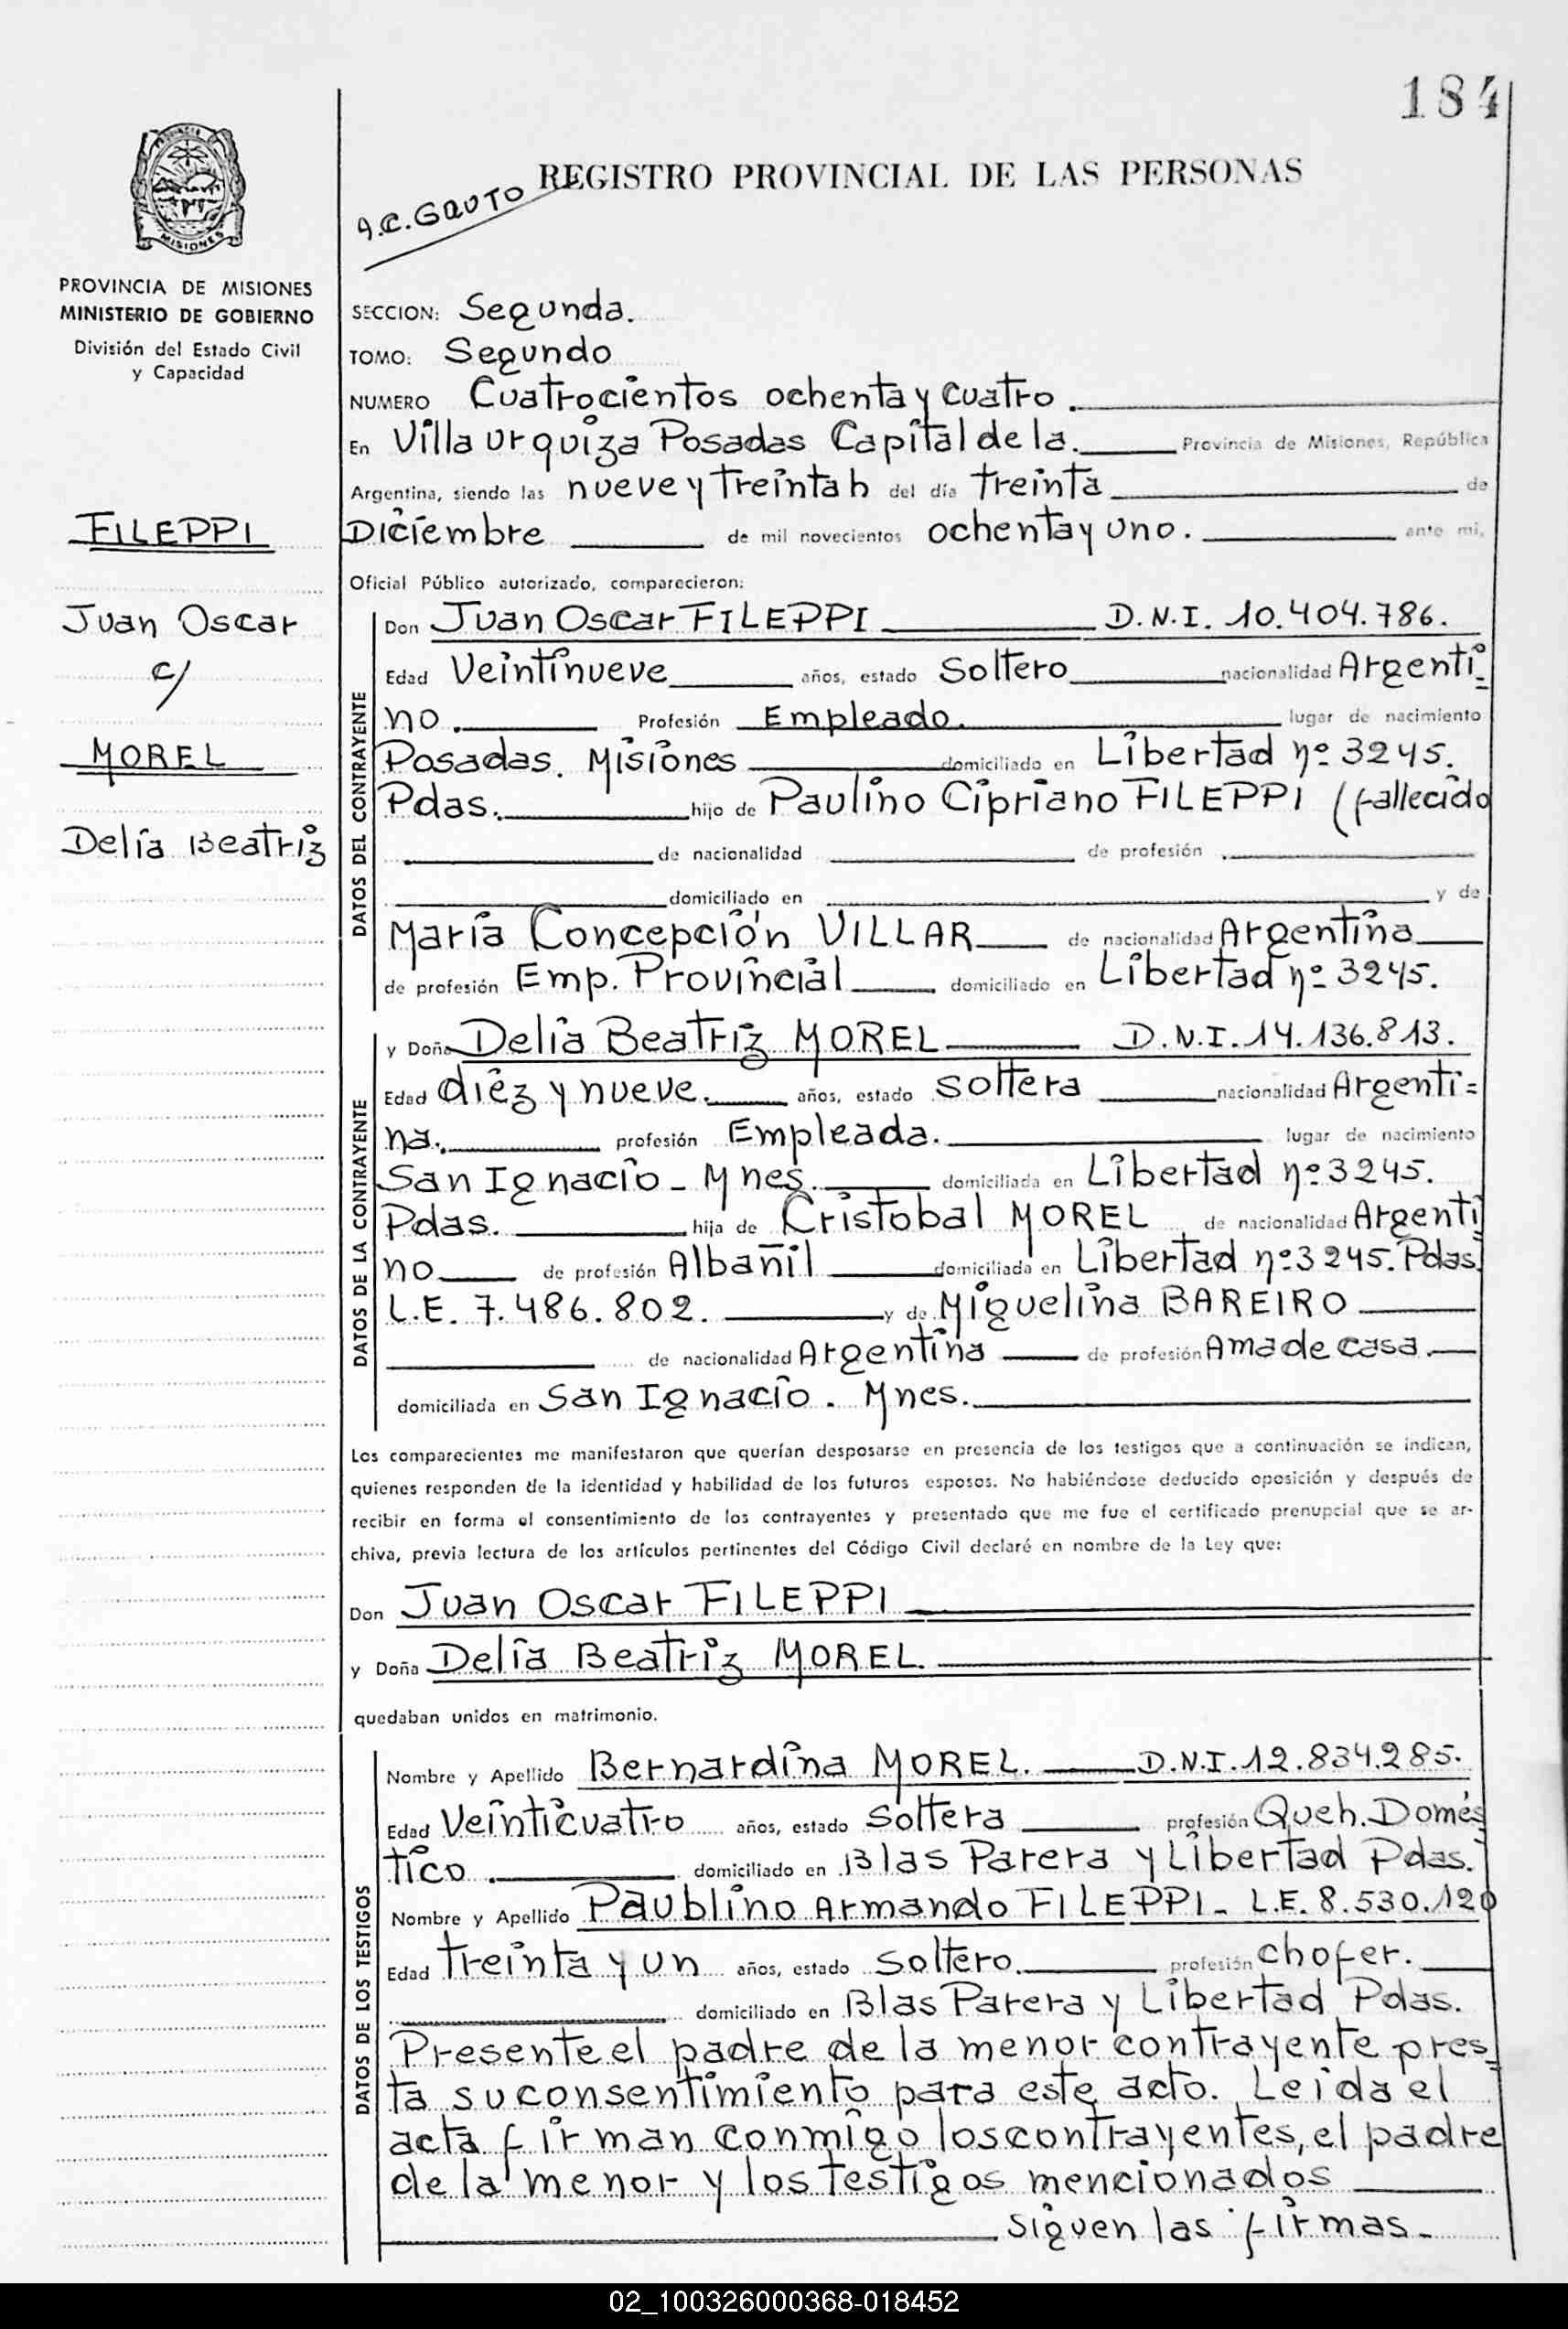 184
REGISTRO PROVINCIAL DE LAS PERSONAS
A.C. GAUTO
MISIONES
PROVINCIA DE MISIONES
MINISTERIO DE GOBIERNO
División del Estado Civil
y Capacidad
FILEPPI
Juan Oscar
c/
MOREL
Delia Beatriz
SECCION: Segunda.
TOMO: Segundo
NUMERO Cuatrocientos ochenta y cuatro.
En Villa Urquiza Posadas Capital de la. Provincia de Misiones, República
Argentina, siendo las nueve y treinta h del día treinta de
Diciembre de mil novecientos ochenta y uno. ante mi,
Oficial Público autorizado, comparecieron:
DATOS DEL CONTRAYENTE
Don Juan Oscar FILEPPI D.N.I. 10.404.786.
Edad Veintinueve años, estado Soltero nacionalidad Argenti_
no. Profesión Empleado. lugar de nacimiento
Posadas. Misiones domiciliado en Libertad nº 3245.
Pdas. hijo de Paulino Cipriano FILEPPI (fallecido
de nacionalidad de profesión
domiciliado en y de
María Concepción VILLAR de nacionalidad Argentina
de profesión Emp. Provincial domiciliado en Libertad nº 3245.
DATOS DE LA CONTRAYENTE
y Doña Delia Beatriz MOREL D.N.I. 14.136.813.
Edad diéz y nueve. años, estado soltera nacionalidad Argenti=
na. profesión Empleada. lugar de nacimiento
San Ignacio - Mnes. domiciliada en Libertad nº 3245.
Pdas. hija de Cristobal MOREL de nacionalidad Argenti
no de profesión Albañil domiciliada en Libertad nº 3245. Pdas.
L.E. 7.486.802. y de Miguelina BAREIRO
de nacionalidad Argentina de profesión Ama de casa.
domiciliada en San Ignacio. Mnes.
Los comparecientes me manifestaron que querían desposarse en presencia de los testigos que a continuación se indican,
quienes responden de la identidad y habilidad de los futuros esposos. No habiéndose deducido oposición y después de
recibir en forma el consentimiento de los contrayentes y presentado que me fue el certificado prenupcial que se ar-
chiva, previa lectura de los artículos pertinentes del Código Civil declaré en nombre de la Ley que:
Don Juan Oscar FILEPPI
y Doña Delia Beatriz MOREL.
quedaban unidos en matrimonio.
DATOS DE LOS TESTIGOS
Nombre y Apellido Bernardina MOREL. D.N.I. 12.834.285.
Edad Veinticuatro años, estado Soltera profesión Queh. Domés
tico. domiciliado en Blas Parera y Libertad Pdas.
Nombre y Apellido Paublino Armando FILEPPI - L.E. 8.530.120
Edad treinta y un años, estado Soltero. profesión chofer.
domiciliado en Blas Parera y Libertad Pdas.
Presente el padre de la menor contrayente pres_
ta su consentimiento para este acto. Leida el
acta firman conmigo los contrayentes, el padre
de la menor y los testigos mencionados
siguen las firmas.
02_100326000368-018452